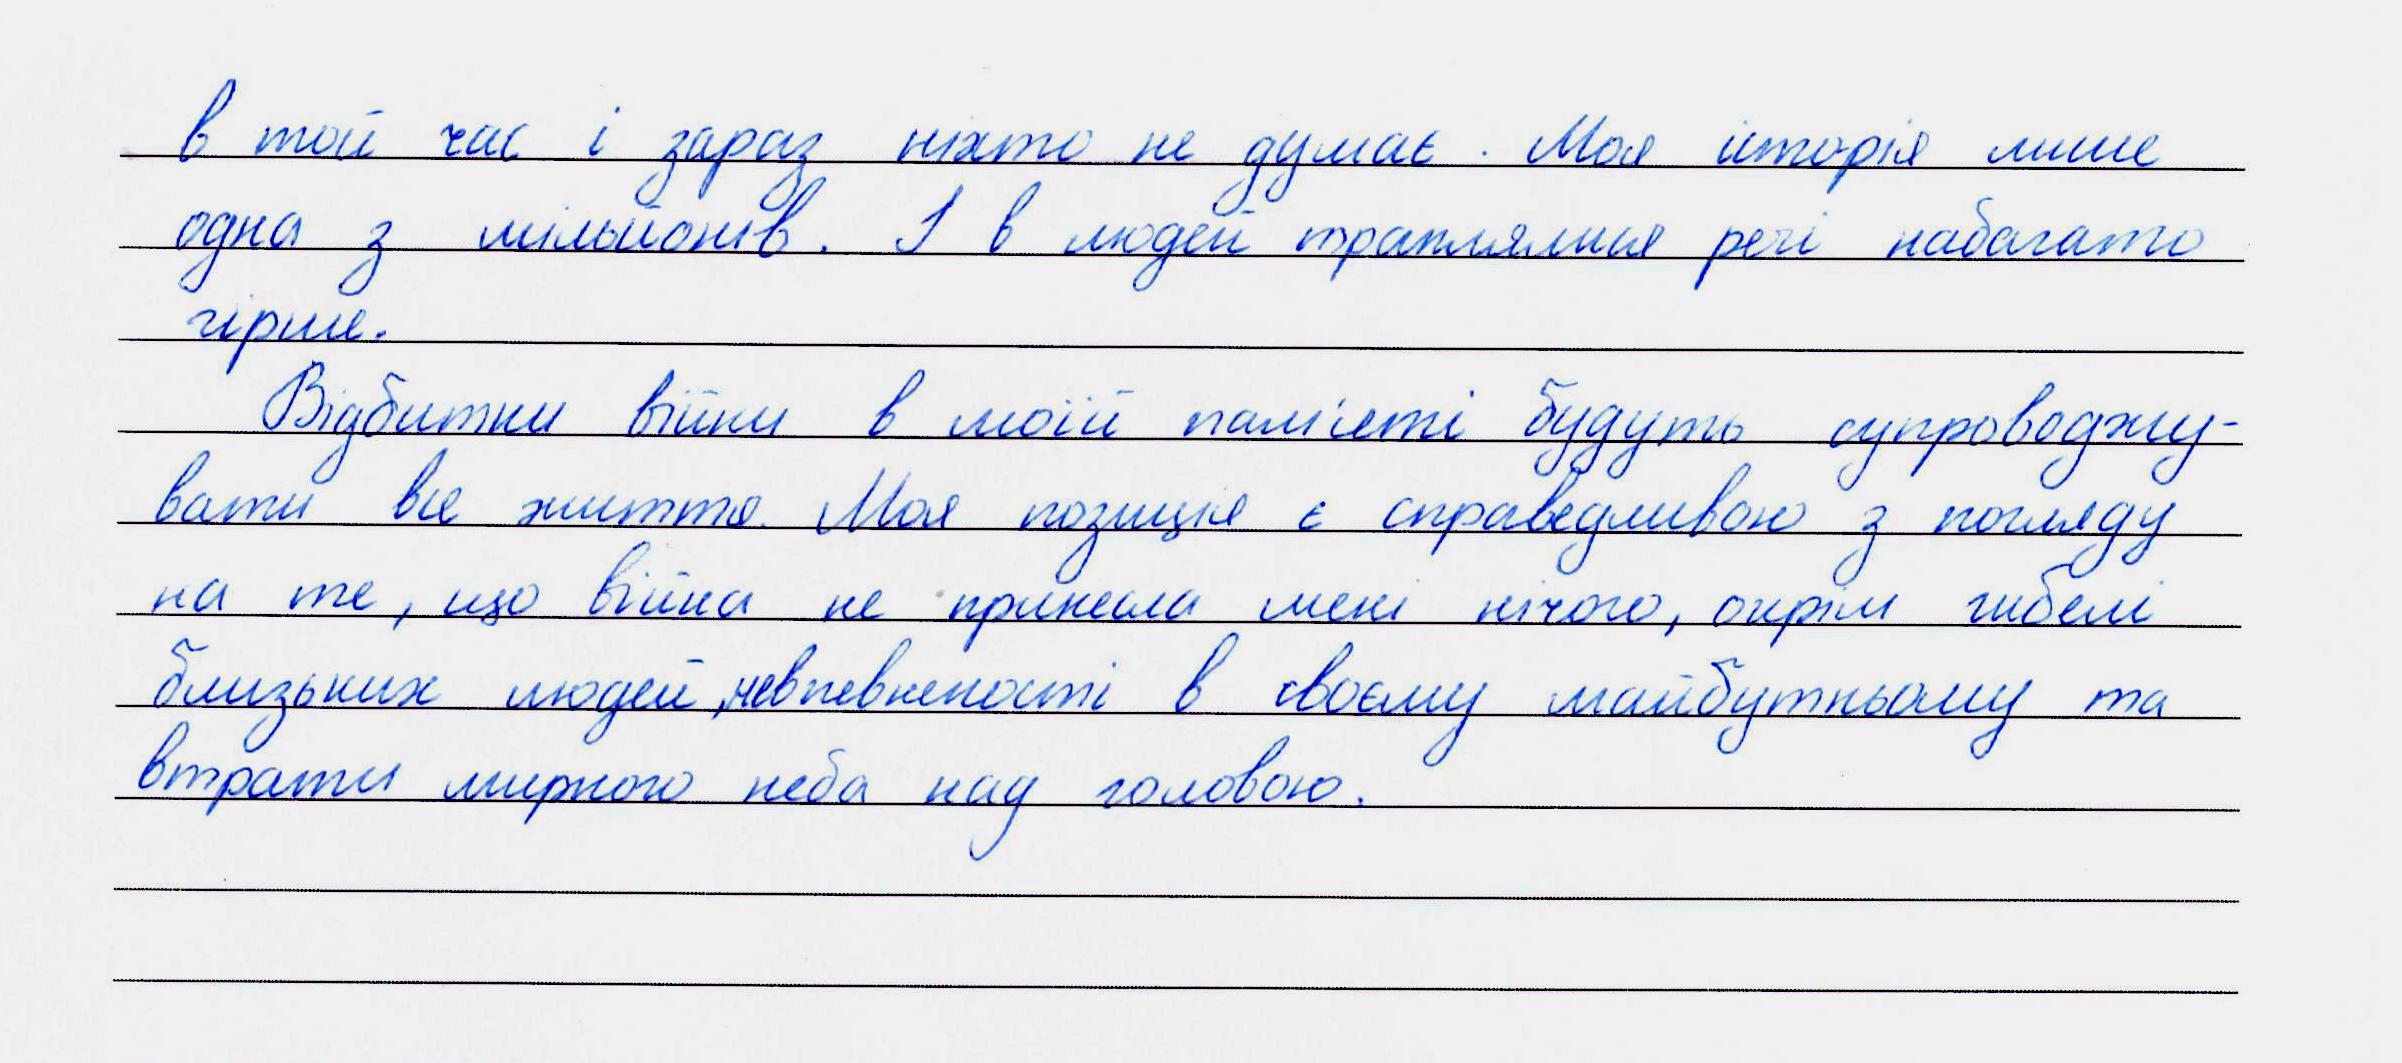 в той час і зараз ніхто не думає. Моя історія лише
одна з мільйонів. І в людей траплялися речі набагато
гірше.
Відбитки війни в моїй пам'яті будуть супроводжу-
вати все життя. Моя позиція є справедливою з погляду
на те, що війна не принесла мені нічого, окрім гибелі
близьких людей, невпевнености в своєму майбутньому та
втрати мирного неба над головою.